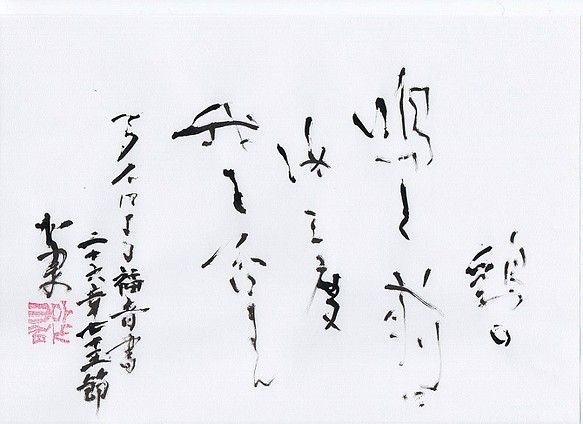 鶏の
鳴く前に
汝三度
我を否まん
マタイによる福音書
二十六章七十五節